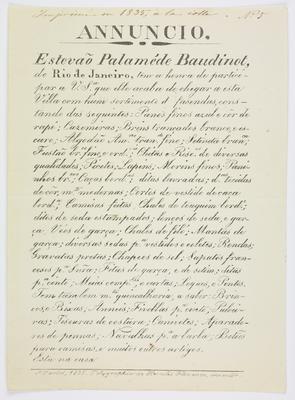 Imprimé en 1835, à la N.º 5
ANNUNCIO.
Estevão Palaméde Baudinot,
do Rio de Janeiro, tem a honra de partici-
par a V.ª S.ª que elle acaba de chegar a esta
Villa com hum sortimento d' fasendas, cons-
tando das seguintes: Panos finos azul e côr de
rapé; Cazemiras; Brins trançados branco, e es-
curo; Algodão Am.º tran. fino; Setineta bran;
Fustão br. fino, e ord.º; Chitas e Risc. de diversas
qualidades; Morins finos; Pani-
nhos br. Caças bord. ditas lavradas; d.as tecidas
de côr, m.º modernas; Córtes de vestido de caça
bord.; Camisas feitas; Chales de touquim bord.;
ditos de seda estampados; lenços de seda, e gar-
ça; Véos de garça; Chales de filó; Mantas de
garça; diversas sedas p.ª vestidos e coletes; Rendas;
Gravatas pretas; Chapeos de sol; Sapatos fran-
ceses p.ª Snra; Fitas de garça, e de setim; ditas
p.ª cinto; Meias comp. e curtas; Leques, e Pentes.
Tem tambem m.ª quinquilharia; a saber: Brin-
cos, e Bixas; Anneis; Fivellas p.ª cinto; Pulcei-
ras; Tisouras de costura; Canivetes; Aparado-
res de pennas; Navalhas p.ª a barba; Botões
para camisas, e muitos outros artigos.
Esta na casa
1835.